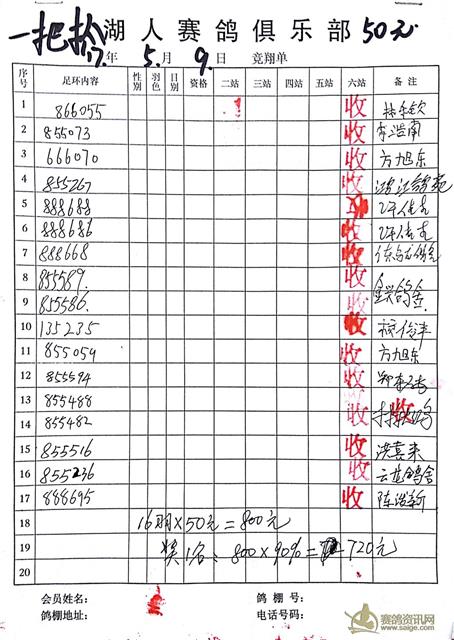 一把抢 湖人赛鸽俱乐部 50元
17年 5.月 9.日 竞翔单
序号 足环内容 性别 羽色 日别 资格 二站 三站 四站 五站 六站 备注
1 866055 收
2 855073 收 李浩南
3 666070 收 方旭东
4 855267 收
5 888688
6 888686 收
7 888668 收
8 855589. 收
9 855586. 收
10 135235 收
11 855059 收 方旭东
12 855594 收
13 855488
14 855482 收 收
15 855516 收 洪喜来
16 855236 收 云龙鸽舍
17 888695 收 陈浩新
18 16羽×50元=800元
19 奖1名: 800×90%= 720元
20
会员姓名: 鸽棚号:
鸽棚地址: 电话号码:
赛鸽资讯网
www.saige.com